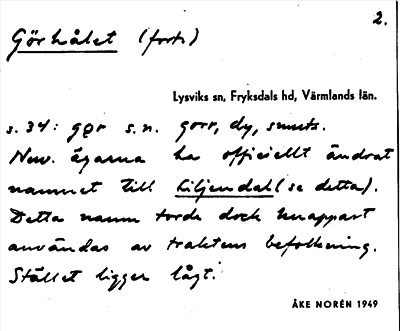 2.
Görhålet (forts)
Lysviks sn, Fryksdals hd, Värmlands län.
s. 34: gǫr s.n. gorr, dy, smuts.
Nuv. ägarna ha officiellt ändrat
namnet till Liljendahl (se detta).
Detta namn torde dock knappast
användas av traktens befolkning.
Stället ligger lågt.
ÅKE NORÉN 1949